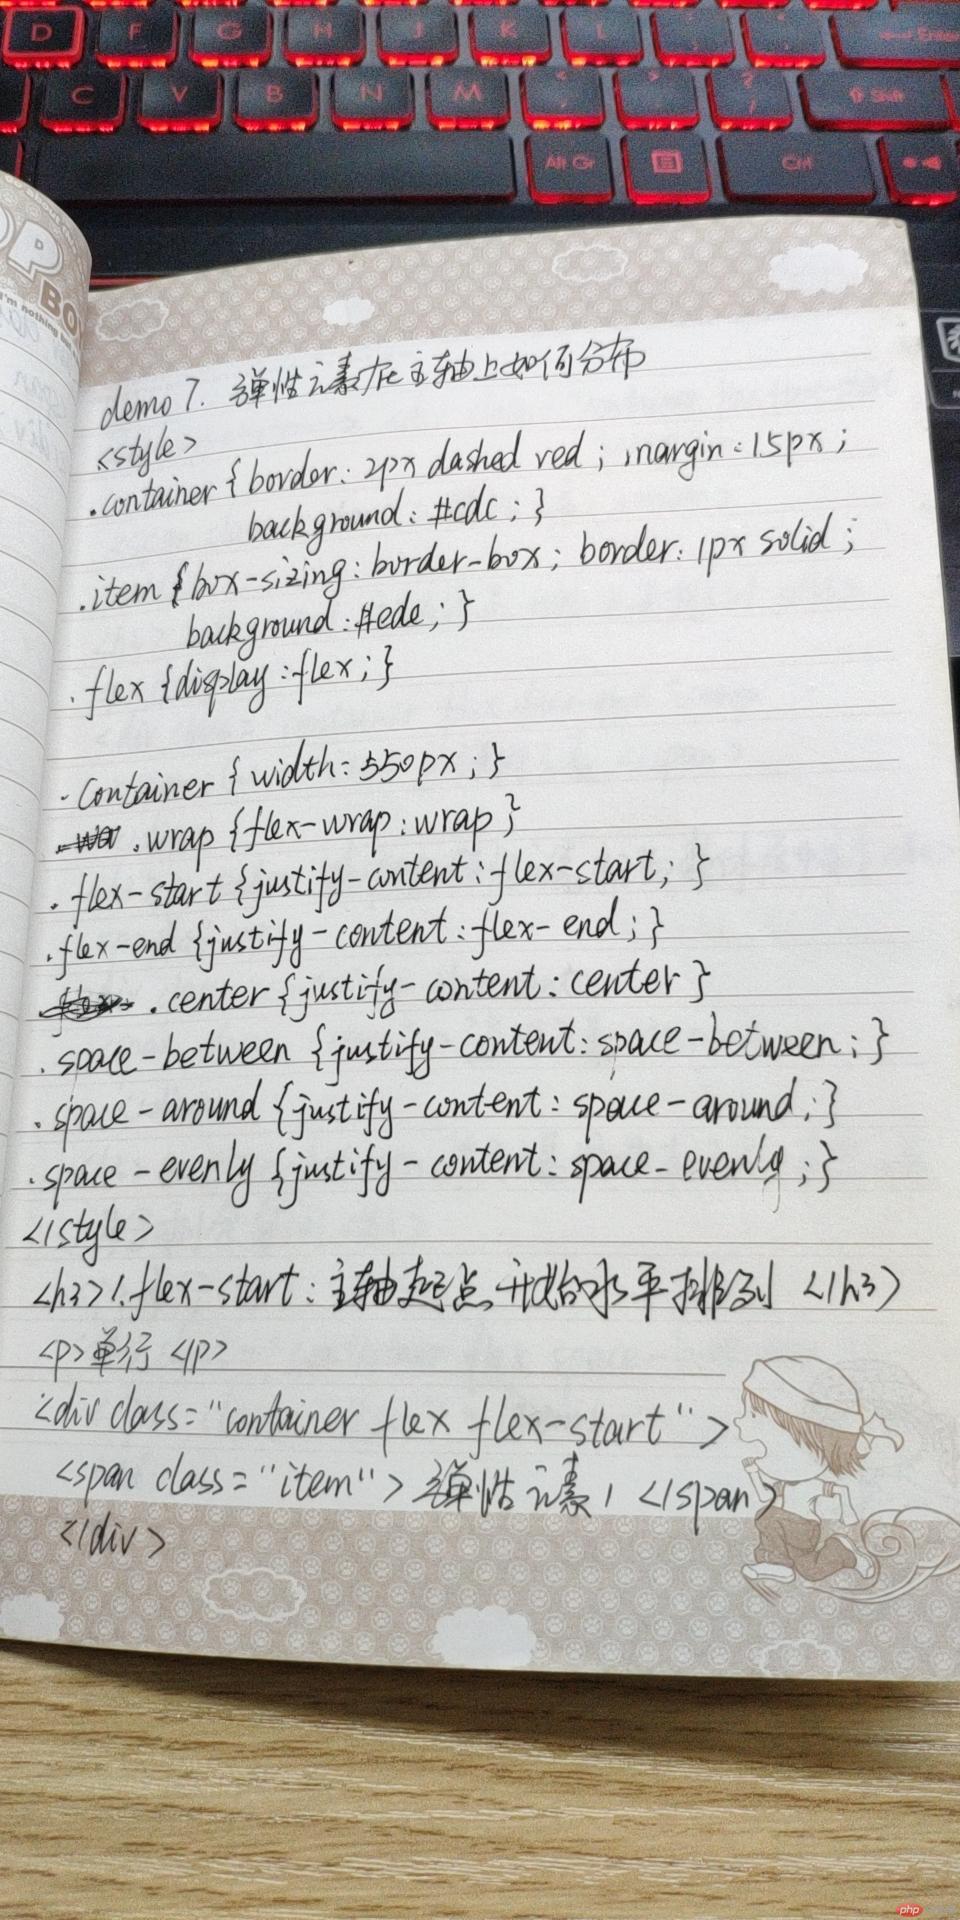 D F G H J K L Enter
C V B N M Shift
Alt Gr Ctrl
OP
BO
I'm nothing
demo 7. 弹性元素在主轴上如何分布
<style>
.container {border: 2px dashed red; margin: 15px;
background: #cdc; }
.item {box-sizing: border-box; border: 1px solid;
background: #ede; }
.flex {display: flex; }
.container { width: 550px; }
.wrap {flex-wrap: wrap }
.flex-start {justify-content: flex-start; }
.flex-end {justify-content: flex-end; }
.center {justify-content: center }
.space-between {justify-content: space-between; }
.space-around {justify-content: space-around; }
.space-evenly {justify-content: space-evenly; }
</style>
<h3>1.flex-start: 主轴起点开始水平排列 </h3>
<p>单行 </p>
<div class="container flex flex-start">
<span class="item"> 弹性元素1 </span>
</div>
php